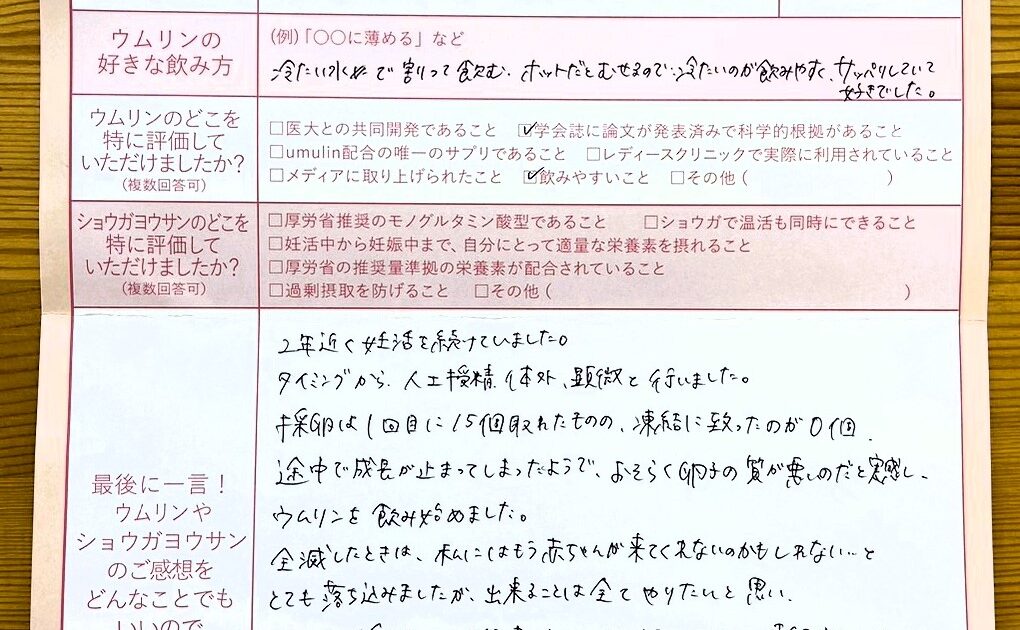 ウムリンの
好きな飲み方
(例)「〇〇に薄める」など
冷たい水で割って飲む。ホットだとむせるので、冷たいのが飲みやすく、サッパリしていて
好きでした。
ウムリンのどこを
特に評価して
いただけましたか?
(複数回答可)
□医大との共同開発であること ☑学会誌に論文が発表済みで科学的根拠があること
□umulin配合の唯一のサプリであること □レディースクリニックで実際に利用されていること
□メディアに取り上げられたこと ☑飲みやすいこと □その他( )
ショウガヨウサンのどこを
特に評価して
いただけましたか?
(複数回答可)
□厚労省推奨のモノグルタミン酸型であること □ショウガで温活も同時にできること
□妊活中から妊娠中まで、自分にとって適量な栄養素を摂れること
□厚労省の推奨量準拠の栄養素が配合されていること
□過剰摂取を防げること □その他( )
最後に一言!
ウムリンや
ショウガヨウサン
のご感想を
どんなことでも
いいので
2年近く妊活を続けていました。
タイミングから、人工授精、体外、顕微と行いました。
採卵は1回目に15個取れたものの、凍結に至ったのが0個。
途中で成長が止まってしまったようで、おそらく卵子の質が悪いのだと実感し、
ウムリンを飲み始めました。
全滅したときは、私にはもう赤ちゃんが来てくれないのかもしれない…と
とても落ち込みましたが、出来ることは全てやりたいと思い、